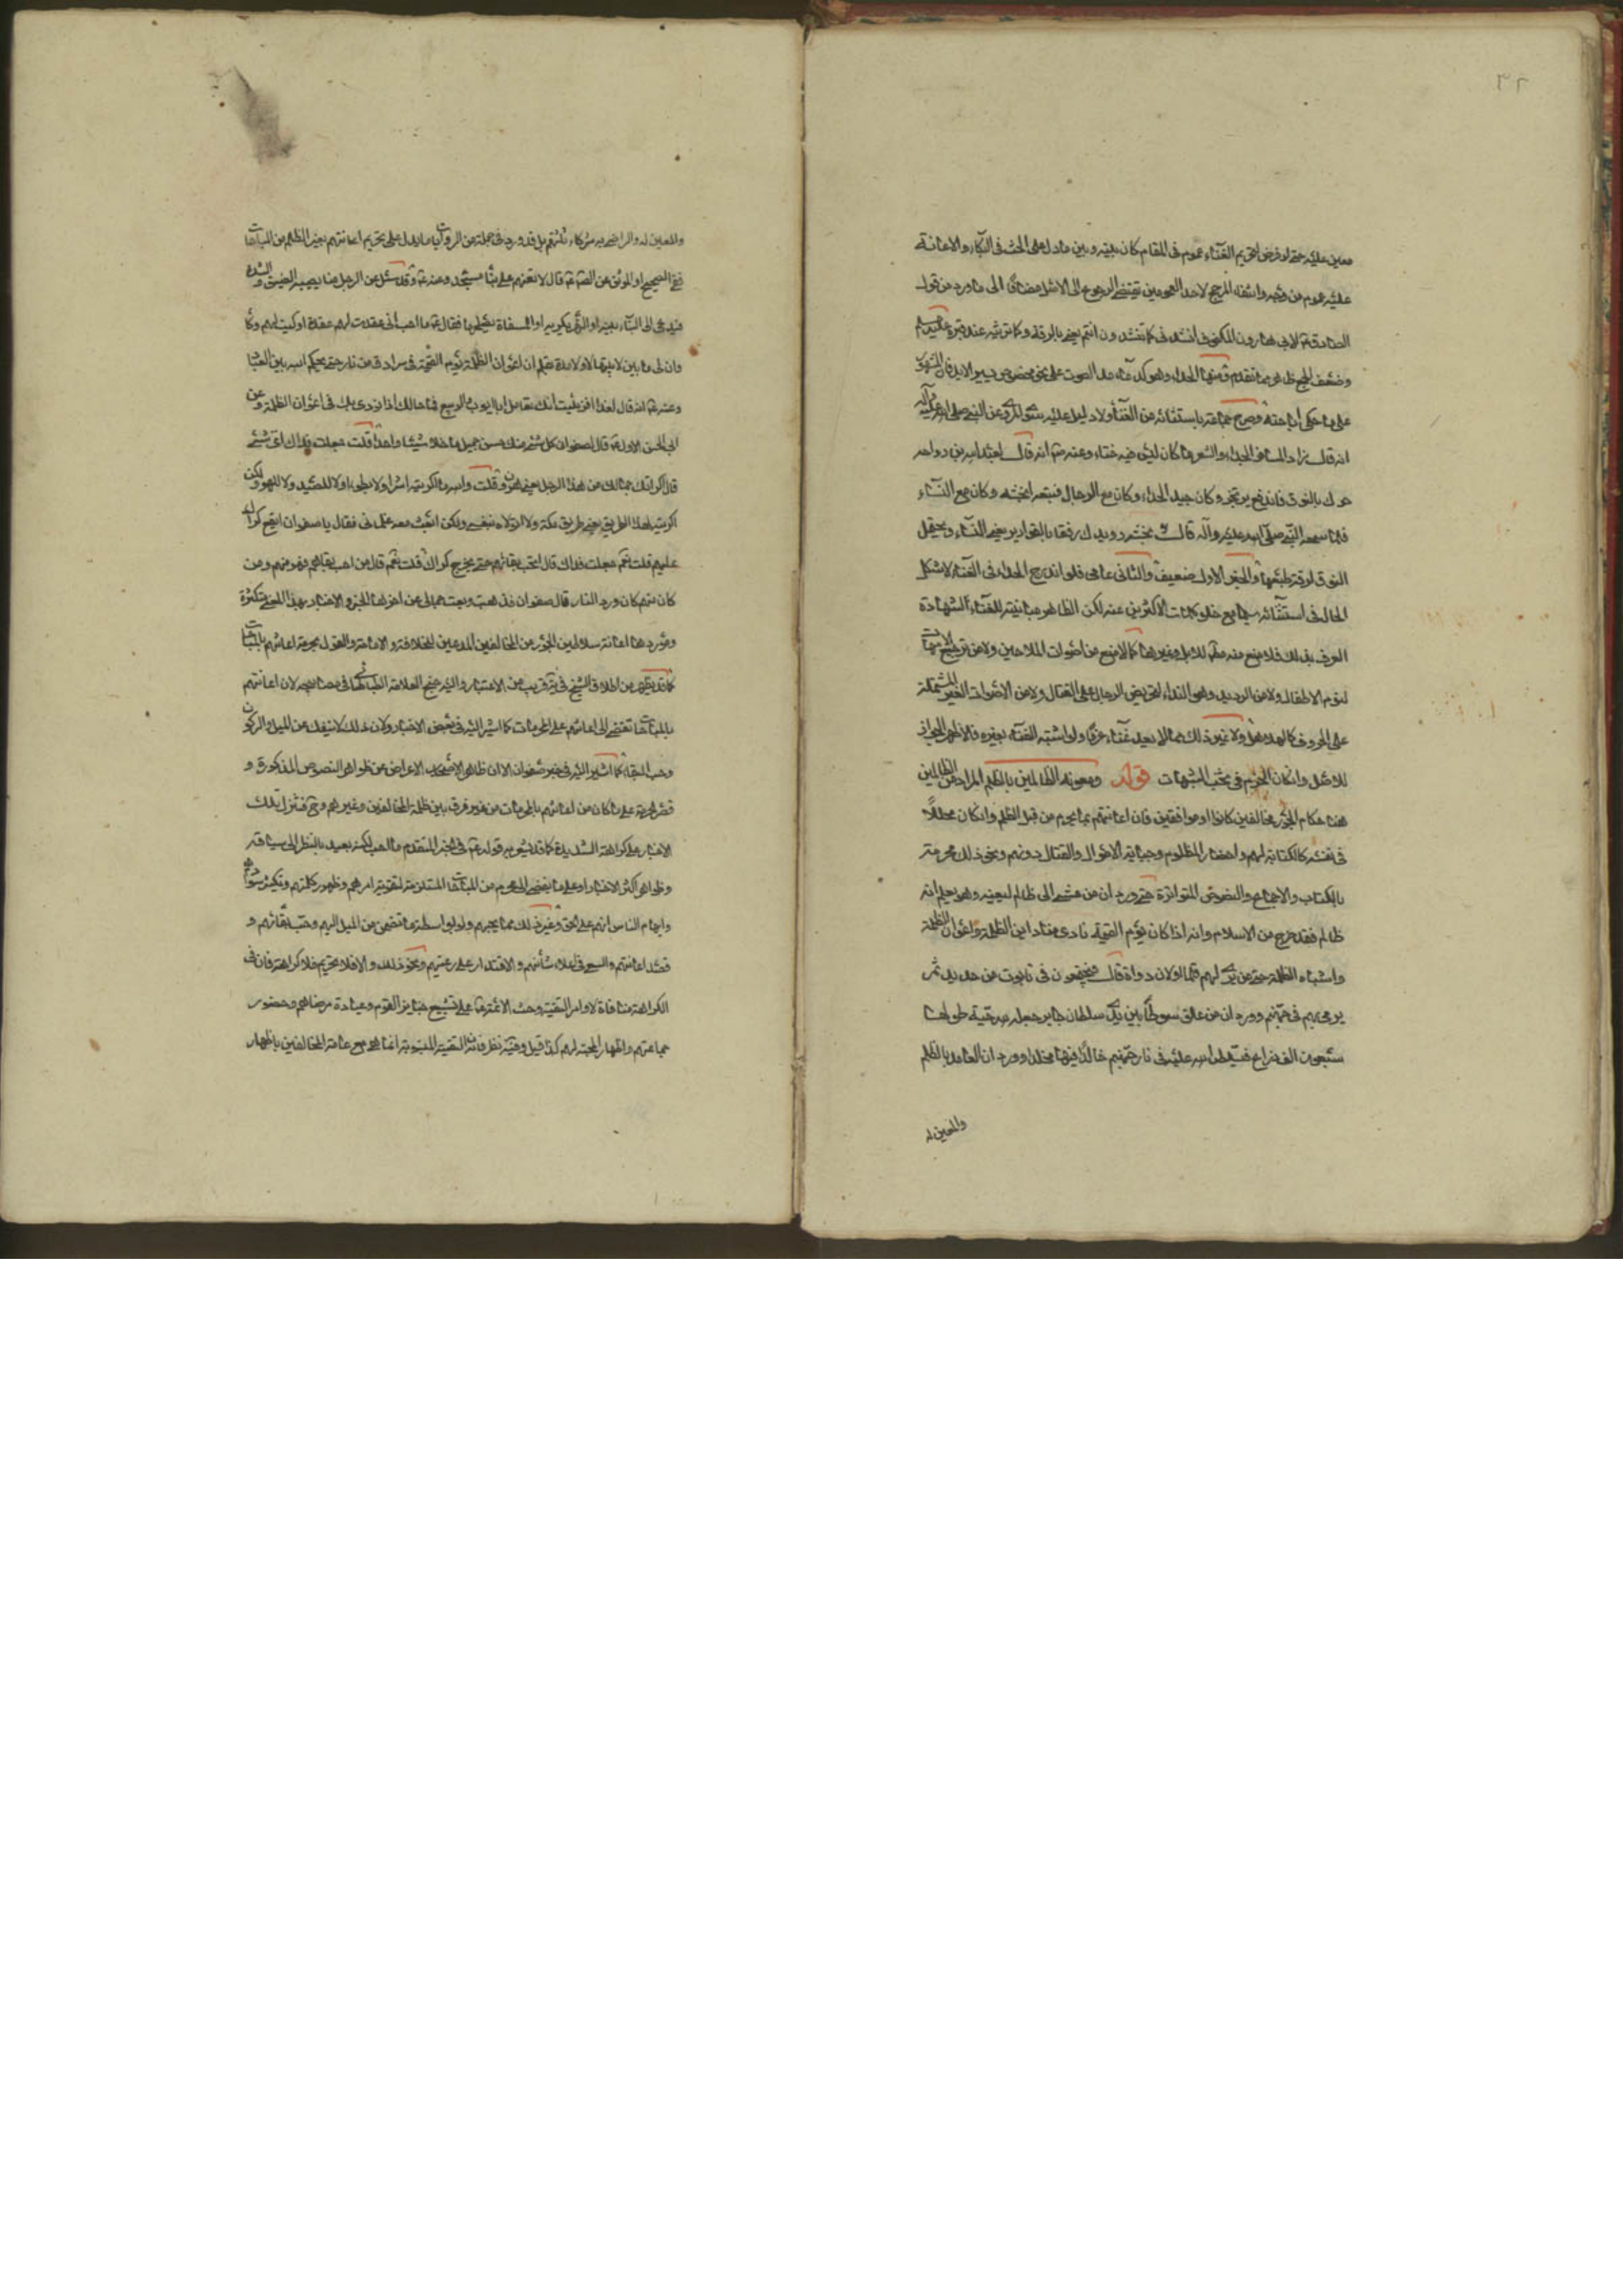 ٣٢
معين عليه حتى لو فرض لتحريم الغناء عموم فى المقام كان بينه وبين ما دل على الحث فى البكاء والاعانة
عليه عموم من وجه وانتفاء المرجح لاحد العمومين يقتضى الرجوع الى الاصل مضافا الى ما ورد من قول
الصادق ع لابى هارون المكفوف انشدنى كما تنشدون انتم يعنى بالرقة وكما ترثيه عند قبره
وضعف الجمع ظاهر مما تقدم ومنها الحداء وهو كدعاء مد الصوت على نحو مخصوص يسير الابل فان المشهور
على ما حكى اباحته وصرح جماعة باستثنائه من الغناء ولا دليل عليه سوى المروى عن النبى صلى الله عليه وآله
انه قال زاد المسافر الحداء والشعر ما كان ليس فيه خناء وعنه ص انه قال لعبد الله بن رواحه
حرك بالنوق فاندفع يرتجز وكان جيد الحداء وكان مع الرجال فتبعه انجشه وكان مع النساء
فلما سمعه النبى صلى الله عليه وآله قال يا انجشه رويدك رفقا بالقوارير يعنى النساء ويحتمل
النوق لرقة طبعها والخبر الاول ضعيف والثانى عامى فلو اندرج الحداء فى الغناء لاشكل
الحال فى استثنائه سيما مع خلو كلمات الاكثرين عنه لكن الظاهر مباينته للغناء لشهادة
العرف بذلك فلا منع منه مطلقا للابل وغيرها كما لا منع من اصوات الملاحين ولا من ترجيع الامهات
لنوم الاطفال ولا من الرديد وهو النداء لتحريض الرجال على القتال ولا من الاصوات الغير المشتملة
على الحروف كالهلاهل ولا غير ذلك مما لا يعد غناء عرفا ولو اشتبه الغناء بغيره فالاظهر الجواز
للاصل وان كان الحزم فى تجنب الشبهات قوله ومعونة الظالمين بالظلم المراد من الظالمين
هنا حكام الجور مخالفين كانوا او موافقين فان اعانتهم بما يحرم من قبل الظلم وان كان محللا
فى نفسه كالكتابة لهم واحضار المظلوم وجباية الاموال والقتال دونهم ونحو ذلك محرمة
بالكتاب والاجماع والنصوص المتواترة حتى ورد ان من مشى الى ظالم ليعينه وهو يعلم انه
ظالم فقد خرج من الاسلام وانه اذا كان يوم القيمة نادى مناد اين الظلمة واعوان الظلمة
واشباه الظلمة حتى من برى لهم قلما او لاق دواة قال فيجتمعون فى تابوت من حديد ثم
يرمى بهم فى جهنم وورد ان من علق سوطا بين يدى سلطان جاير جعله الله حية طولها
سبعون الف ذراع فيسلط الله عليه فى نار جهنم خالدا فيها مخلدا وورد ان العامل بالظلم
والمعين له
والمعين له والراضى به شركاء ثلثتهم بل قد ورد فى جملة من الروايات ما يدل على تحريم اعانتهم بغير الظلم من المباحات
ففى الصحيح او الموثق عن الصادق ع قال لا تعنهم على بناء مسجد وعنه ع وقد سئل عن الرجل منا يصيبه الضيق والشدة
فيدعى الى البناء يبنيه او النهر يكريه او المسناة يصلحها فقال ع ما احب انى عقدت لهم عقدة او وكيت لهم وكاء
وان لى ما بين لابتيها لا ولا مدة بقلم ان اعوان الظلمة يوم القيمة فى سرادق من نار حتى يحكم الله بين العباد
وعنه ع انه قال لعذافر نبئت انك تعامل ابا ايوب والربيع فما حالك اذا نودى بك فى اعوان الظلمة وعن
ابى الحسن الاول ع قال لصفوان كل شىء منك حسن جميل ما خلا شيئا واحدا قلت جعلت فداك اى شىء
قال اكرائك جمالك من هذا الرجل يعنى هرون قلت والله ما اكريته اشرا ولا بطرا ولا للصيد ولا للهو ولكن
اكريته لهذا الطريق يعنى طريق مكة ولا اتولاه بنفسى ولكن ابعث معه غلمانى فقال يا صفوان ايقع كراك
عليهم قلت نعم جعلت فداك قال اتحب بقائهم حتى يخرج كراك قلت نعم قال من احب بقاءهم فهو منهم ومن
كان منهم كان ورد النار قال صفوان فذهبت وبعت جمالى عن اخرها الخبر والاخبار بهذا المعنى متكثرة
وموردها اعانة سلاطين الجور من المخالفين المدعين للخلافة والامامة والقول بحرمة اعانتهم بالمباحات
كما قد يظهر من اطلاق الشيخ فى قريب من الاعتبار واليه جنح العلامة الطباطبائى فى مصابيحه لان اعانتهم
بالمباحات تفضى الى اعانتهم على المحرمات كما اشير اليه فى بعض الاخبار ولان ذلك لا ينفك عن الميل والركون
وحب البقاء كما اشير اليه فى خبر صفوان الا ان ظاهر الاصحاب الاعراض عن ظواهر النصوص المذكورة و
قصر الحرمة على ما كان من اعانتهم بالمحرمات من غير فرق بين ظلمة المخالفين وغيرهم وح فتنزل تلك
الاخبار على كراهة الشديدة كما قد يشعر به قوله ع فى الخبر المتقدم ما احب لكنه بعيد بالنظر الى سياقه
وظواهر اكثر الاخبار او على ما يفضى الى المحرم من المباحات المستلزمة لتقوية امرهم وظهور كلمتهم وتكثير سوادهم
وايهام الناس انهم على الحق وغير ذلك مما يحرم ولو بواسطة ما تضمن من الميل اليهم وحب بقائهم و
قصد اعانتهم والسعى فى اعلاء شأنهم والاقتدار على رعيتهم ونحو ذلك والا فلا تحريم فلا كراهة فان فى
الكراهة منافاة لاوامر التقية وحث الائمة ع على تشييع جنايز القوم وعيادة مرضاهم وحضور
جماعتهم واظهار المحبة لهم كذا قيل وفيه نظر فان التقية المندوبة انما هى مع عامة المخالفين باظهار